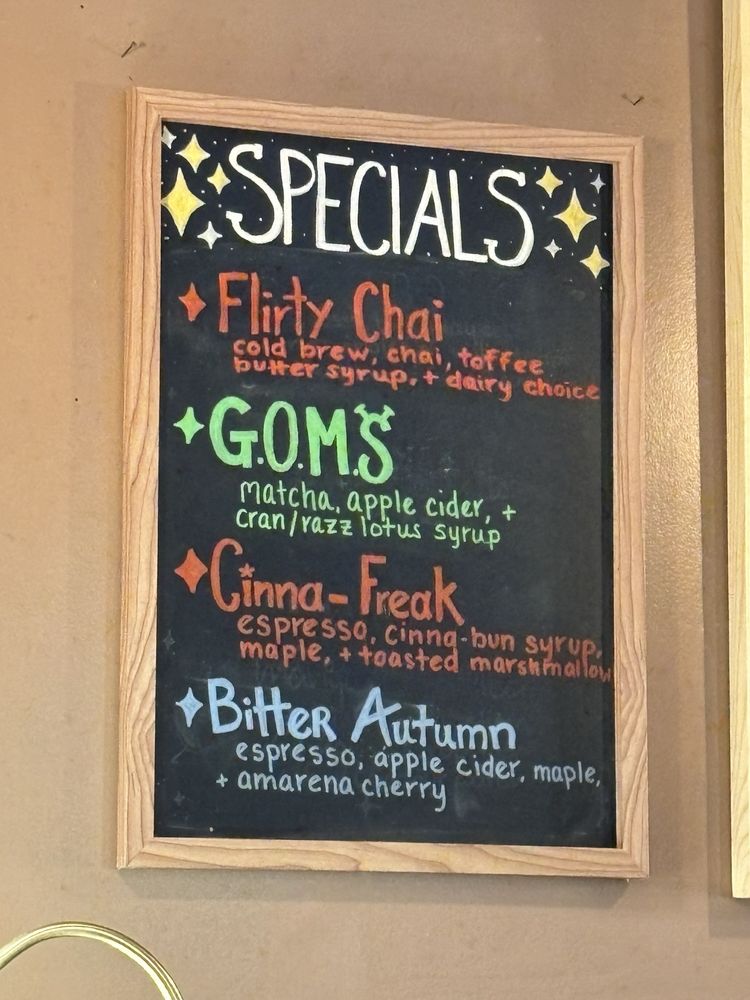 SPECIALS
Flirty Chai
cold brew, chai, toffee
butter syrup, + dairy choice
G.O.M.S
matcha, apple cider, +
cran/razz lotus syrup
Cinna-Freak
espresso, cinna-bun syrup,
maple, + toasted marshmallow
Bitter Autumn
espresso, apple cider, maple,
+ amarena cherry